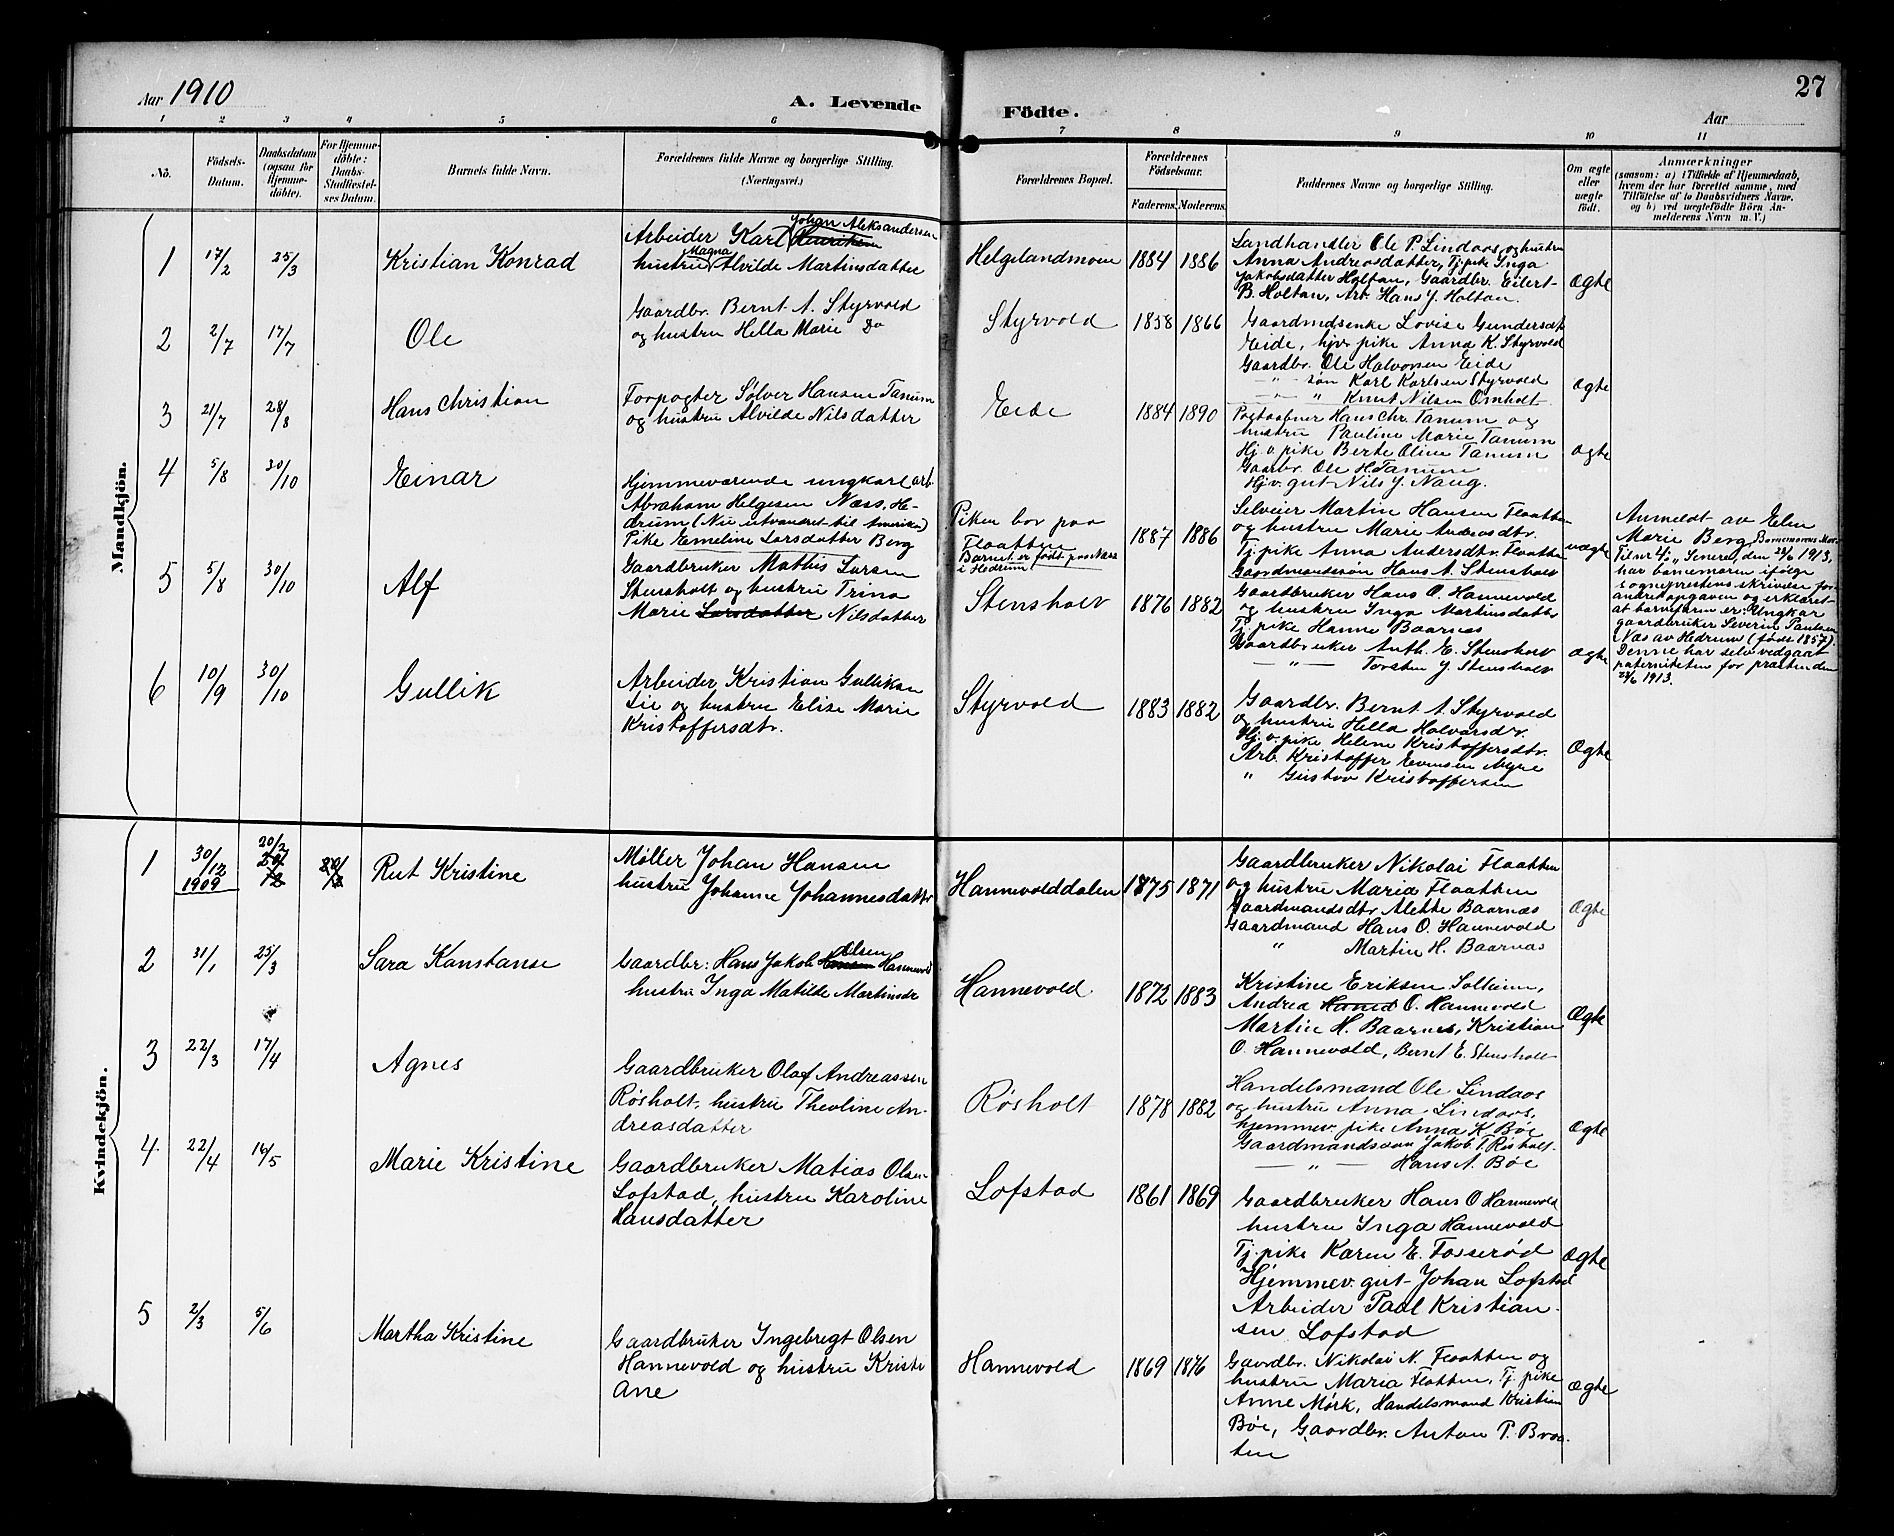 Aar 1910
A. Levende
Födte.
Aar
27
1 2 3 4 5 6 7 8 9 10 11
No.
Födsels-
Datum.
Daabsdatum
(ogsaa for
Hjemme-
döbte).
For Hjemme-
döbte:
Daabs-
Stadfæstel-
ses Datum.
Barnets fulde Navn.
Forældrenes fulde Navne og borgerlige Stilling.
(Næringsvei.)
Forældrenes Bopæl.
Forældrenes
Födselsaar.
Faderens. Moderens.
Faddernes Navne og borgerlige Stilling.
Om ægte
eller
uægte
födt.
Anmærkninger
(saasom: a) i Tilfælde af Hjemmedaab,
hvem der har forrettet samme, med
Tilföielse af to Daabsvidners Navne,
og b) ved uægtefödte Börn An-
melderens Navn m. V.)
Mandkjön.
1 17/2 25/3 Kristian Konrad
Johan Aleksandersen
Arbeider Karl Henriksen
Magna
hustru Alvilde Martinsdatter
Helgelandmoen 1884 1886
Landhandler Ole P. Lindaas og hustru
Anna Andreasdatter, Tj. pike Inga
Jakobsdatter Holtan, Gaardbr. Eilert
B. Holtan, Arb. Hans J. Holtan.
Ægte
2 2/7 17/7 Ole
Gaardbr. Bernt A. Styrvold
og hustru Hella Marie Do
Styrvold 1858 1866
Gaardmdsenke Lovise Gundersdt
Eide, hjv. pike Anna K. Styrvold
Gaardbr. Ole Halvorsen Eide
— " — søn Karl Karlsen Styrvold
— " — " Knut Nilsen Omholt
Ægte
3 21/7 28/8 Hans Christian
Forpagter Sølver Hansen Tanum
og hustru Alvilde Nilsdatter
Eide 1884 1890
Postaabner Hans Chr. Tanum og
hustru Pauline Marie Tanum
Hj. v. pike Berte Oline Tanum
Gaarbr. Ole H. Tanum
Hjv. gut Nils J. Naug.
Ægte
4 5/8 30/10 Einar
Hjemmeværende ungkarl arb.
Abraham Helgesen Næss, He-
drum (Nu utvandret til Amerika)
Pike Emeline Larsdatter Berg
Piken bor paa
Flaatten
Barnet er født paa Næss
i Hedrum
1887 1886
Selveier Martin Hansen Flaatten
og hustru Marie Andersdt.
Tj. pike Anna Andersdtr. Flaatten
Gaardmandssøn Hans A. Stensholt
uægte
Anmeldt av Elen
Marie Berg Barnemorens Mor
Til nr 4 „ Senere, den 24/6 1913,
har barnemoren ifølge
sogneprestens skrivelse for-
andret opgaven og erklæret
at barnefaren er: Ungkar
gaardbruker Severin Paulsen
Næs av Hedrum (født 1857).
Denne har selv vedgaat
paterniteten for præsten den
24/6 1913.
5 5/8 30/10 Alf
Gaardbruker Mathis Larsen
Stensholt og hustru Trina
Marie Larsdatter Nilsdatter
Stensholt 1876 1882
Gaardbruker Hans O. Hannevold
og hustru Inga Martinsdatter
Tj. pike Hanne Baarnes
Gaardbruker Anth. E. Stensholt
— " — Torsten J. Stensholt
Ægte
6 10/9 30/10 Gullik
Arbeider Kristian Gulliksen
Lie og hustru Elise Marie
Kristoffersdtr.
Styrvold 1883 1882
Gaardbr. Bernt A. Styrvold
og hustru Hella Halvorsdtr.
Hj. v. pike Helene Kristoffersdtr.
Arb. Kristoffer Evensen Myre
" Gustav Kristoffersen
Ægte
Kvindekjön.
1 30/12 1909 20/2 Rut Kristine
Møller Johan Hansen
hustru Johanne Johannesdatter
Hannevolddalen 1875 1871
Gaardbruker Nikolai Flaatten
og hustru Maria Flaatten
Gaardmandsdtr Alette Baarnæs
Gaardmand Hans O. Hannevold
" Martin H. Baarnæs
Ægte
2 31/1 25/3 Sara Konstanse
Olsen
Gaardbr: Hans Jakob Hansen Hannevold
hustru Inga Matilde Martinsdt
Hannevold 1872 1883
Kristine Eriksen Solheim,
Andrea Haned O. Hannevold
Martin H. Baarnes, Kristian
O. Hannevold, Bernt E. Stensholt
Ægte
3 22/3 17/4 Agnes
Gaardbruker Olaf Andreassen
Røsholt, hustru Theoline An-
dreasdatter
Røsholt 1878 1882
Handelsmand Ole Lindaas
og hustru Anna Lindaas,
hjemmev. pike Anna K. Bøe
Gaardmandssøn Jakob T. Røsholt
— " — Hans A. Bøe
Ægte
4 22/4 16/5 Marie Kristine
Gaardbruker Matias Olsen
Lofstad, hustru Karoline
Hansdatter
Lofstad 1861 1869
Gaardbruker Hans O Hannevold
hustru Inga Hannevold
Tj. pike Karen E. Fosserød
Hjemmev. gut Johan Lofstad
Arbeider Paul Kristian-
sen Lofstad
Ægte
5 2/3 5/6 Martha Kristine
Gaardbruker Ingebregt Olsen
Hannevold og hustru Kristi
Ane
Hannevold 1869 1876
Gaardbr. Nikolai N. Flaatten og
hustru Maria Flatten, Tj. pike
Anne Mørk, Handelsmand Kristian
Bøe, Gaardbr. Anton P. Braa-
ten
Ægte